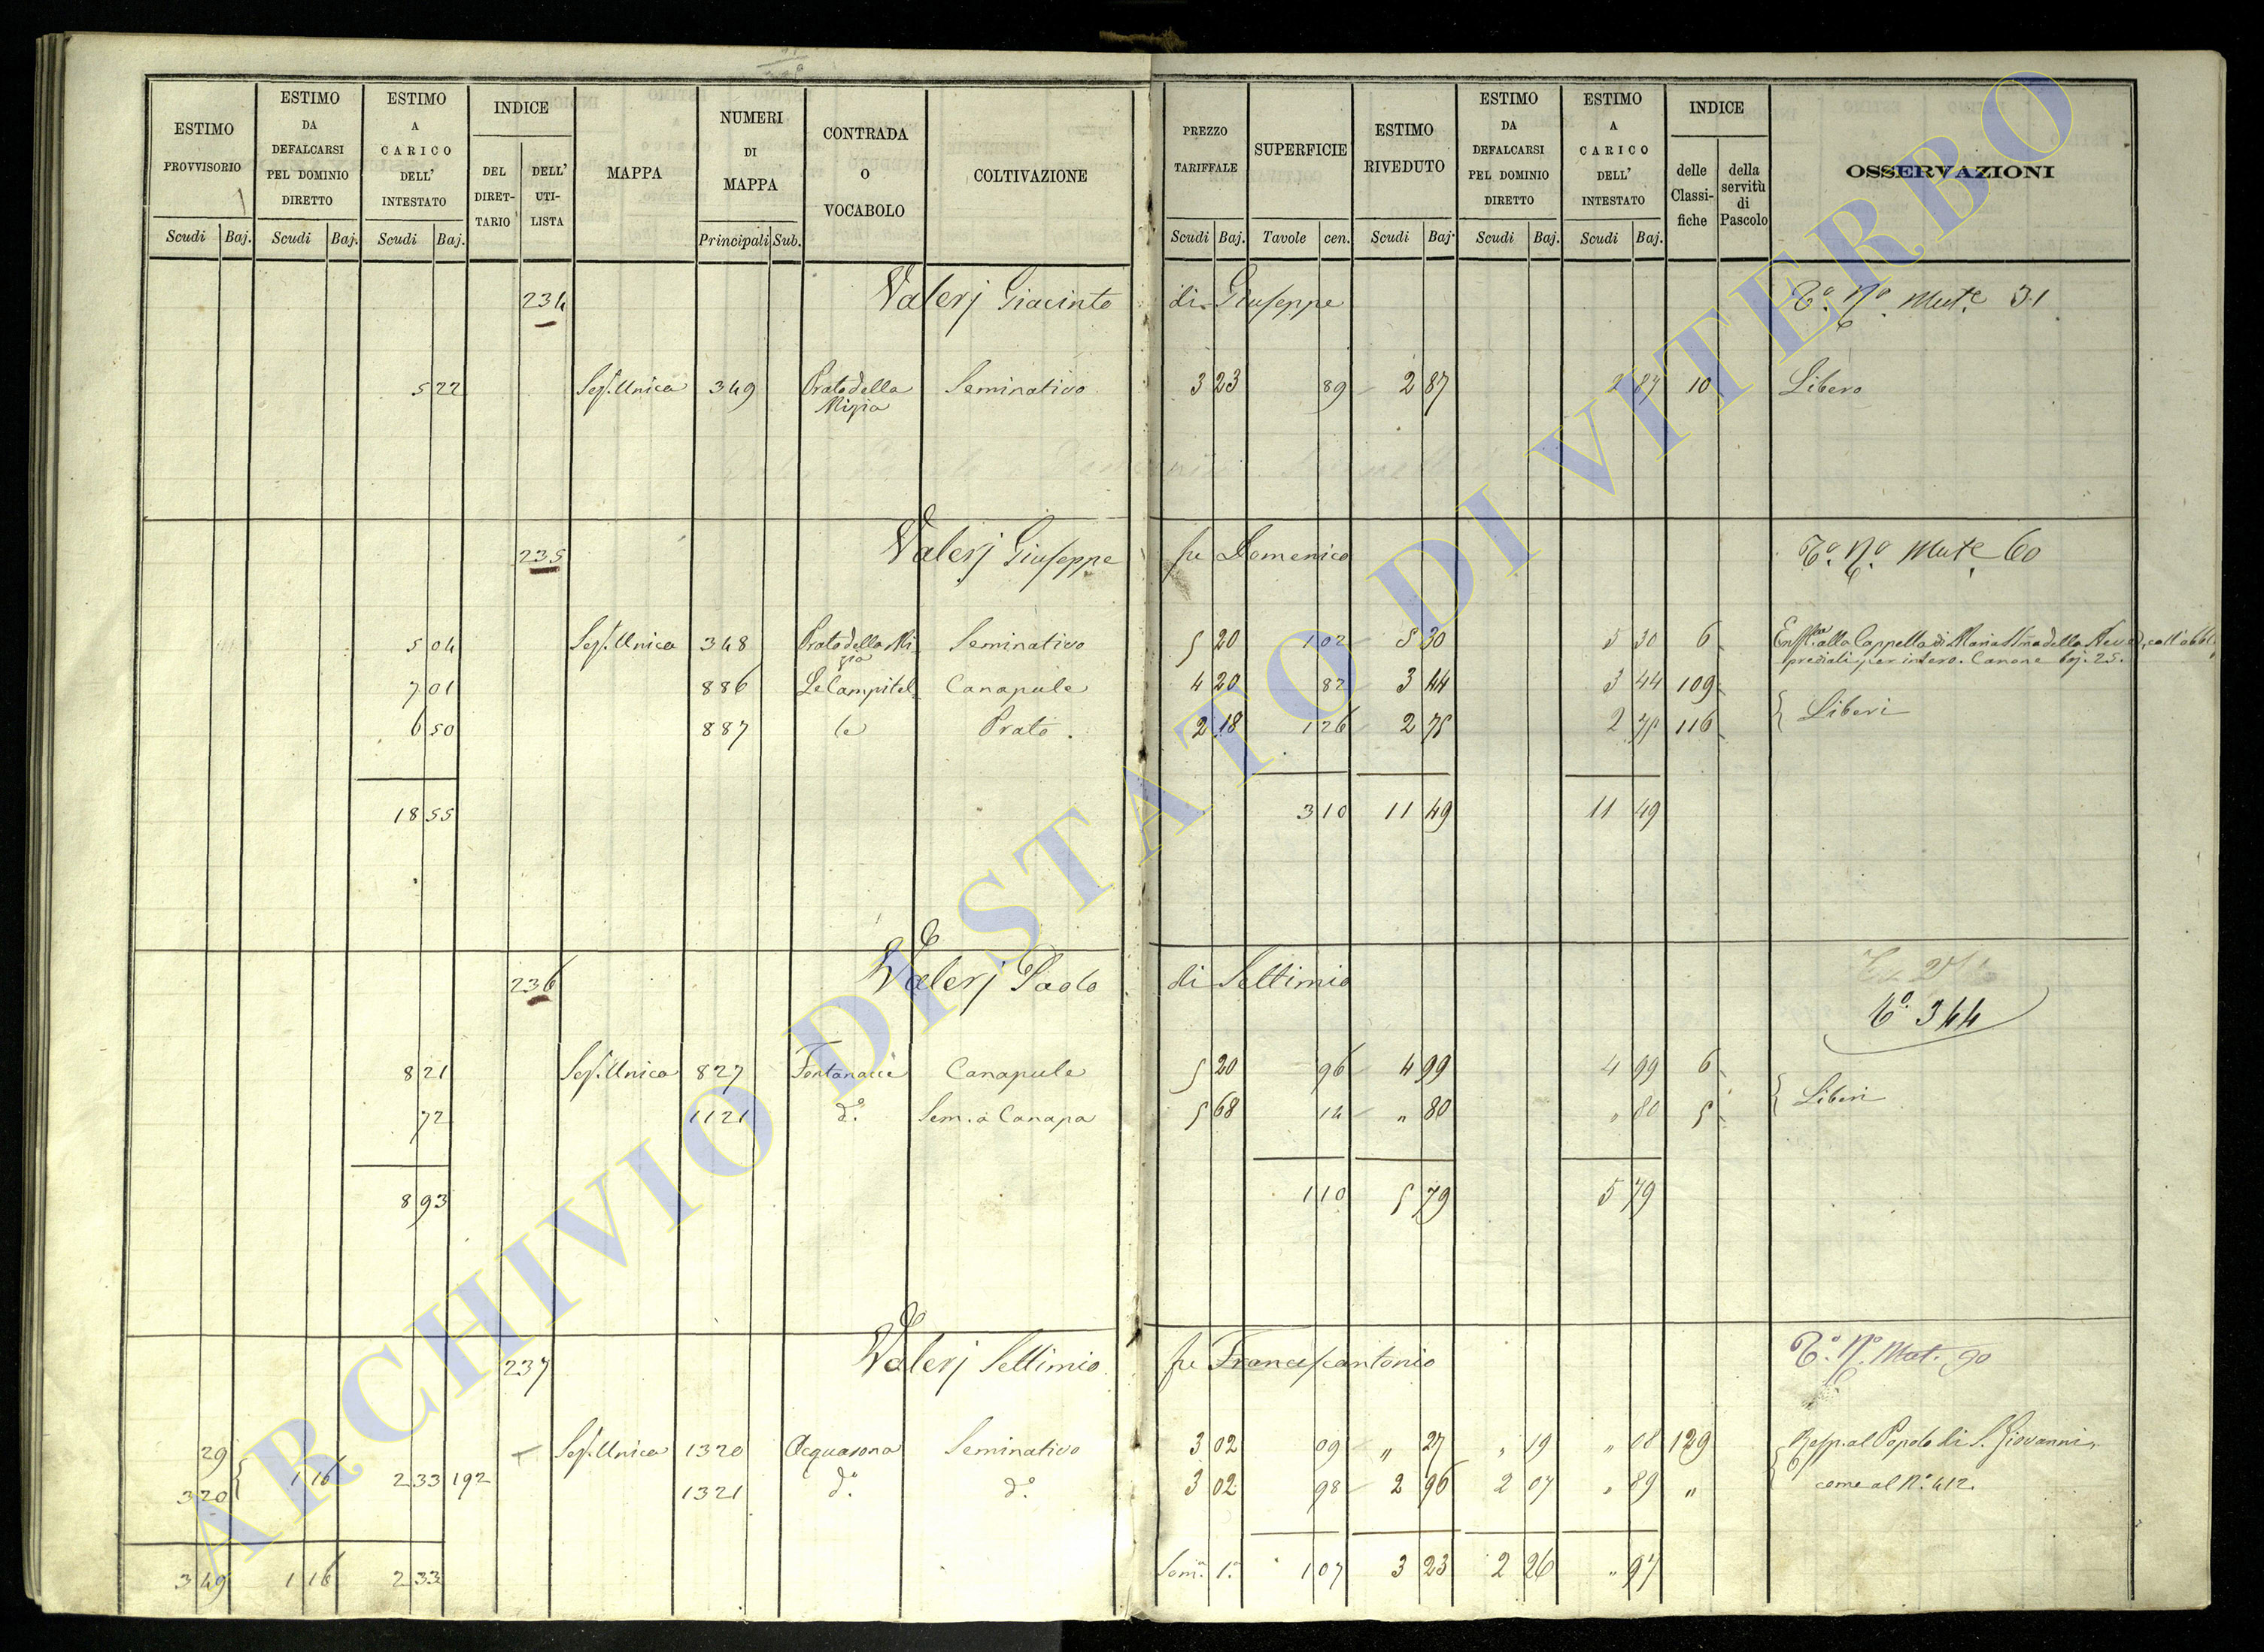 ESTIMO PROVVISORIO | ESTIMO DA DEFALCARSI PEL DOMINIO DIRETTO | ESTIMO A CARICO DELL' INTESTATO | INDICE DEL DIRETTARIO | DELL' UTILISTA | MAPPA | NUMERI DI MAPPA | CONTRADA O VOCABOLO | COLTIVAZIONE | PREZZO TARIFFALE | SUPERFICIE | ESTIMO RIVEDUTO | ESTIMO DA DEFALCARSI PEL DOMINIO DIRETTO | ESTIMO A CARICO DELL' INTESTATO | INDICE delle Classifiche | della servitù di Pascolo | OSSERVAZIONI
Scudi Baj. Scudi Baj. Scudi Baj. Principali Sub. Scudi Baj. Tavole cen. Scudi Baj. Scudi Baj. Scudi Baj.
234 Valerj Giacinto di Giuseppe T.º N.º Mut.e 31
5 22 Sez. Unica 349 Prato della Mizia Seminativo 3 23 89 2 87 2 87 10 Libero
235 Valerj Giuseppe fu Domenico T.º N.º Mut.e 60
5 04 Sez. Unica 348 Prato della Mizia Seminativo 5 20 1 02 5 30 5 30 6 alla Cappella di Maria della Neve, coll'
prediali per intero. Canone baj. 25.
7 01 886 Le Campitelle Canapule 4 20 82 3 44 3 44 109
6 50 887 Prato 2 18 1 26 2 75 2 75 116 Liberi
18 55 3 10 11 49 11 49
236 Valerj Paolo di Settimio
T.º 344
8 21 Sez. Unica 827 Fontanacce Canapule 5 20 96 4 99 4 99 6 Liberi
72 1121 d.º Sem. a Canapa 5 68 14 " 80 " 80 5
8 93 1 10 5 79 5 79
237 Valerj Settimio fu Francescantonio T.º N.º Mut. 90
29 Sez. Unica 1320 Acquasona Seminativo 3 02 09 " 27 " 19 " 08 129 Resp. al Popolo di S. Giovanni,
3 20 1 16 2 33 192 1321 d.º d.º 3 02 98 2 96 2 07 " 89 " come al N.º 412.
3 49 1 16 2 33 Som. 1.ª 1 07 3 23 2 26 " 97
ARCHIVIO DI STATO DI VITERBO